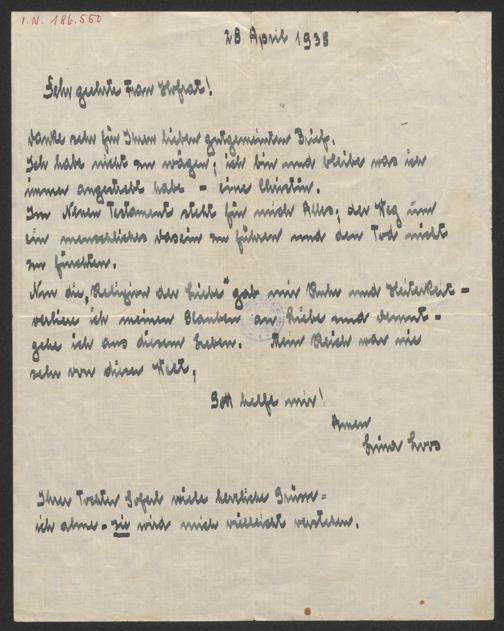 I.N. 186.560
28 April 1938
Sehr geehrte Frau Hofrat!
Danke sehr für Ihren lieben gutgemeinten Brief.
Ich habe nicht zu wägen; ich bin und bleibe was ich
immer angestrebt habe - eine Christin.
Im Neuen Testament steht für mich Alles; der Weg um
ein menschliches Dasein zu führen und den Tod nicht
zu fürchten.
Nur die „Religion der Liebe" gab mir Ruhe und Heiterkeit -
verliere ich meinen Glauben an Liebe und Demut -
gehe ich aus diesem Leben. Mein Reich war nie
sehr von dieser Welt,
Gott helfe mir!
Amen
Lina Loos
Ihrer Tochter viele herzliche Grüsse -
ich ahne - sie wird mich vielleicht verstehen.